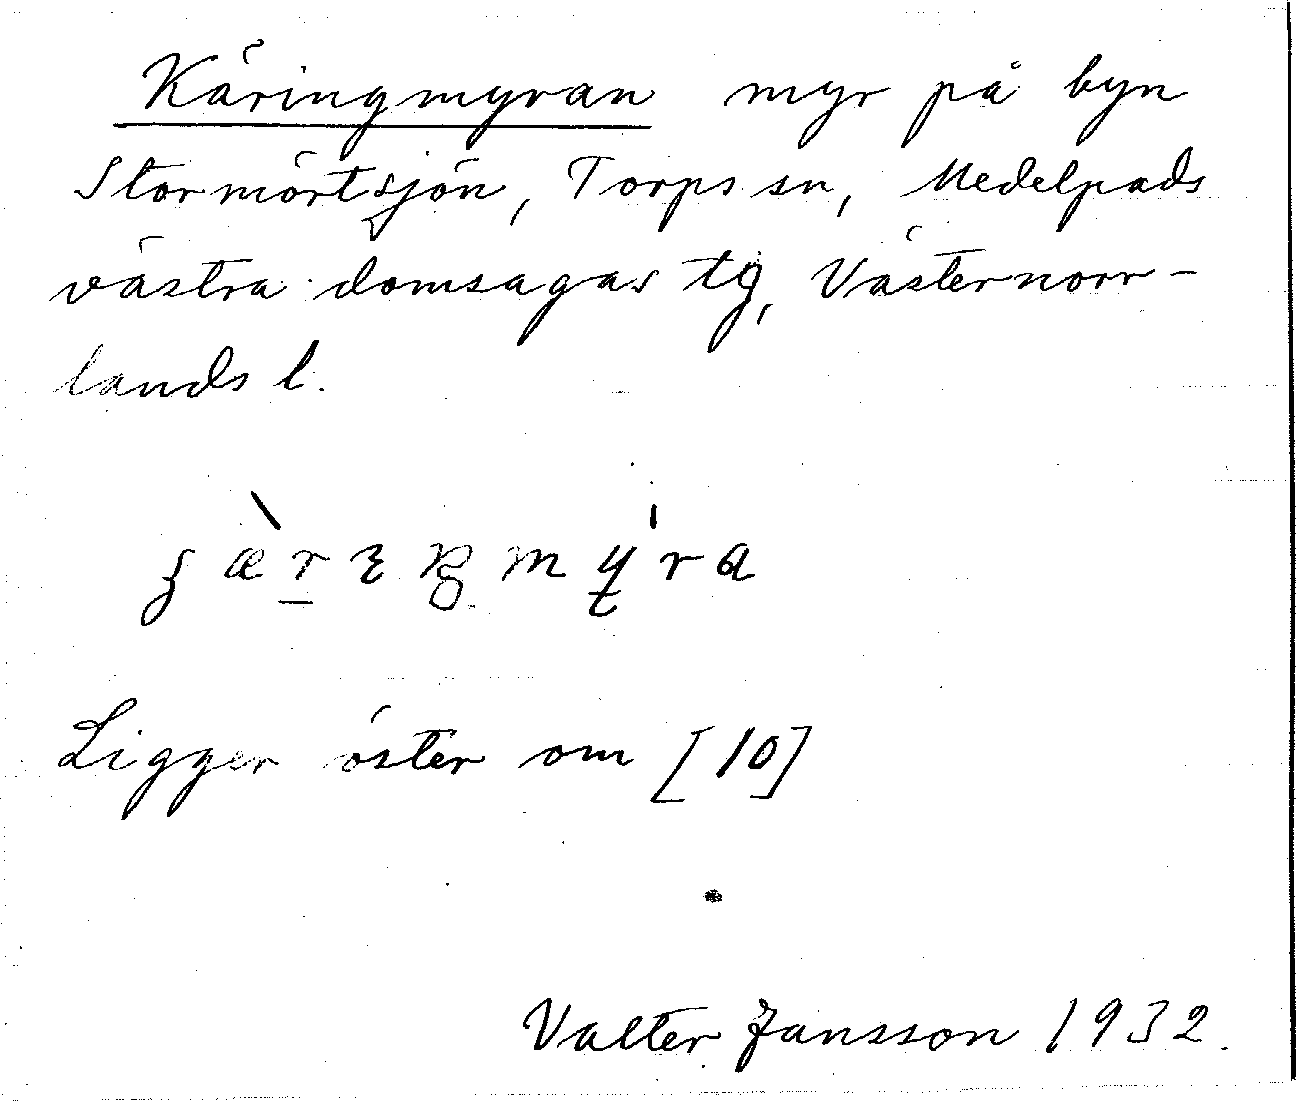 Käringmyran myr på byn
Stormörtsjön, Torps sn, Medelpads
västra domsagas tg, Västernorr-
lands l.
Ligger öster om [10]
Valter Jansson 1932.